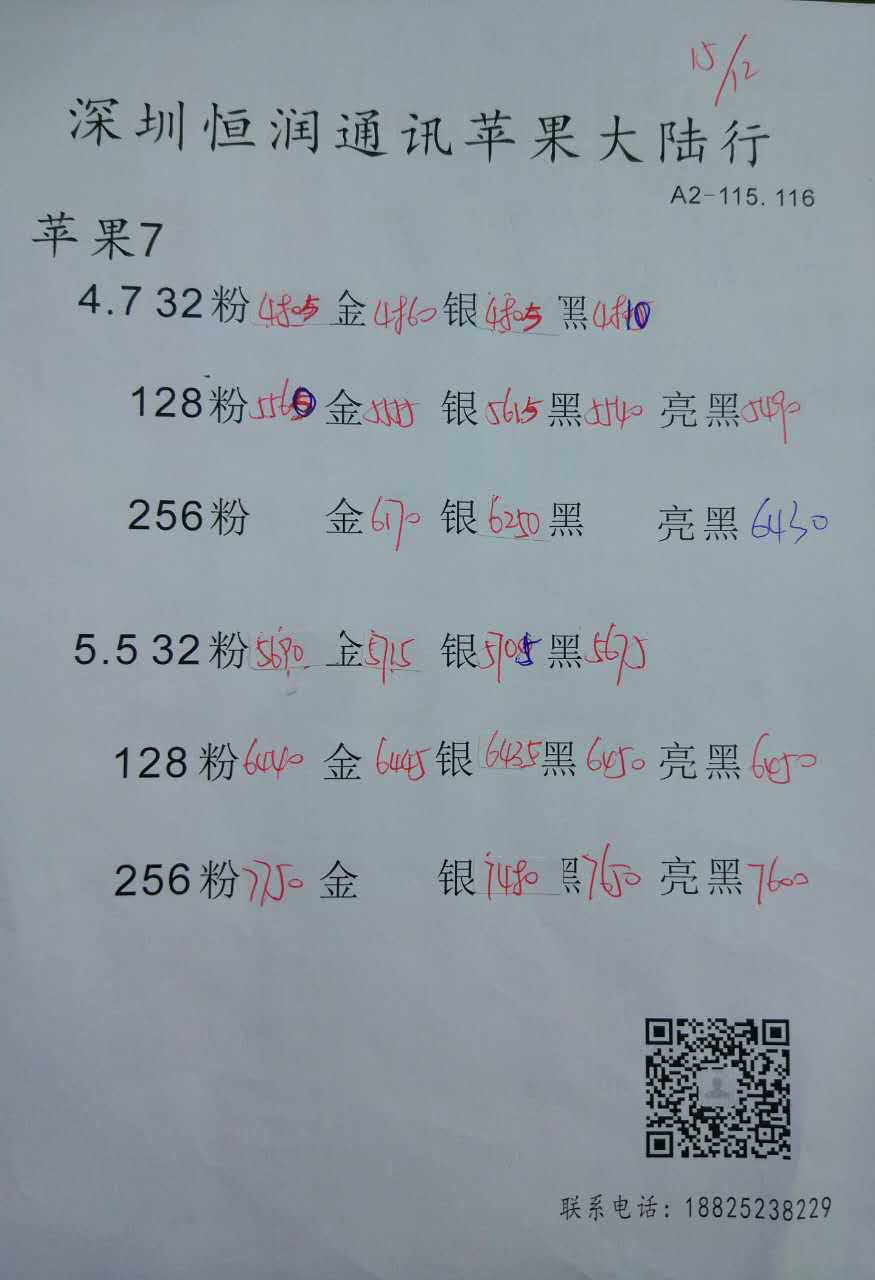 15/12
深圳恒润通讯苹果大陆行
A2-115.116
苹果7
4.7 32粉4805 金4860 银4805 黑4810
128粉5560 金5555 银5615 黑5540 亮黑5490
256粉 金6170 银6250 黑 亮黑6430
5.5 32粉5690 金5715 银5705 黑5675
128粉6440 金6445 银6435 黑6450 亮黑6450
256粉7750 金 银7480 黑7650 亮黑7600
联系电话：18825238229